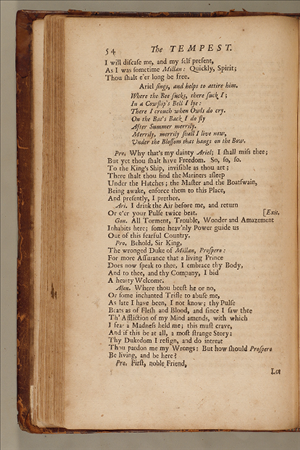 54 The TEMPEST.
I will discase me, and my self present,
As I was sometime Millan: Quickly, Spirit;
Thou shalt e'er long be free.
Ariel sings, and helps to attire him.
Where the Bee sucks, there suck I;
In a Cowslip's Bell I lye:
There I crouch when Owls do cry.
On the Bat's Back I do fly
After Summer merrily.
Merrily, merrily shall I live now,
Under the Blossom that hangs on the Bow.
Pro. Why that's my dainty Ariel; I shall miss thee;
But yet thou shalt have Freedom. So, so, so.
To the King's Ship, invisible as thou art;
There shalt thou find the Mariners asleep
Under the Hatches; the Master and the Boatswain,
Being awake, enforce them to this Place,
And presently, I prethee.
Ari. I drink the Air before me, and return
Or e'er your Pulse twice beat. [Exit.
Gon. All Torment, Trouble, Wonder and Amazement
Inhabits here; some heav'nly Power guide us
Out of this fearful Country.
Pro. Behold, Sir King,
The wronged Duke of Millan, Prospero:
For more Assurance that a living Prince
Does now speak to thee, I embrace thy Body,
And to thee, and thy Company, I bid
A hearty Welcome.
Alon. Where thou beest he or no,
Or some inchanted Trifle to abuse me,
As late I have been, I not know; thy Pulse
Beats as of Flesh and Blood, and since I saw thee
Th' Affliction of my Mind amends, with which
I fear a Madness held me; this must crave,
And if this be at all, a most strange Story:
Thy Dukedom I resign, and do intreat
Thou pardon me my Wrongs: But how should Prospero
Be living, and be here?
Pro. First, noble Friend,
Let